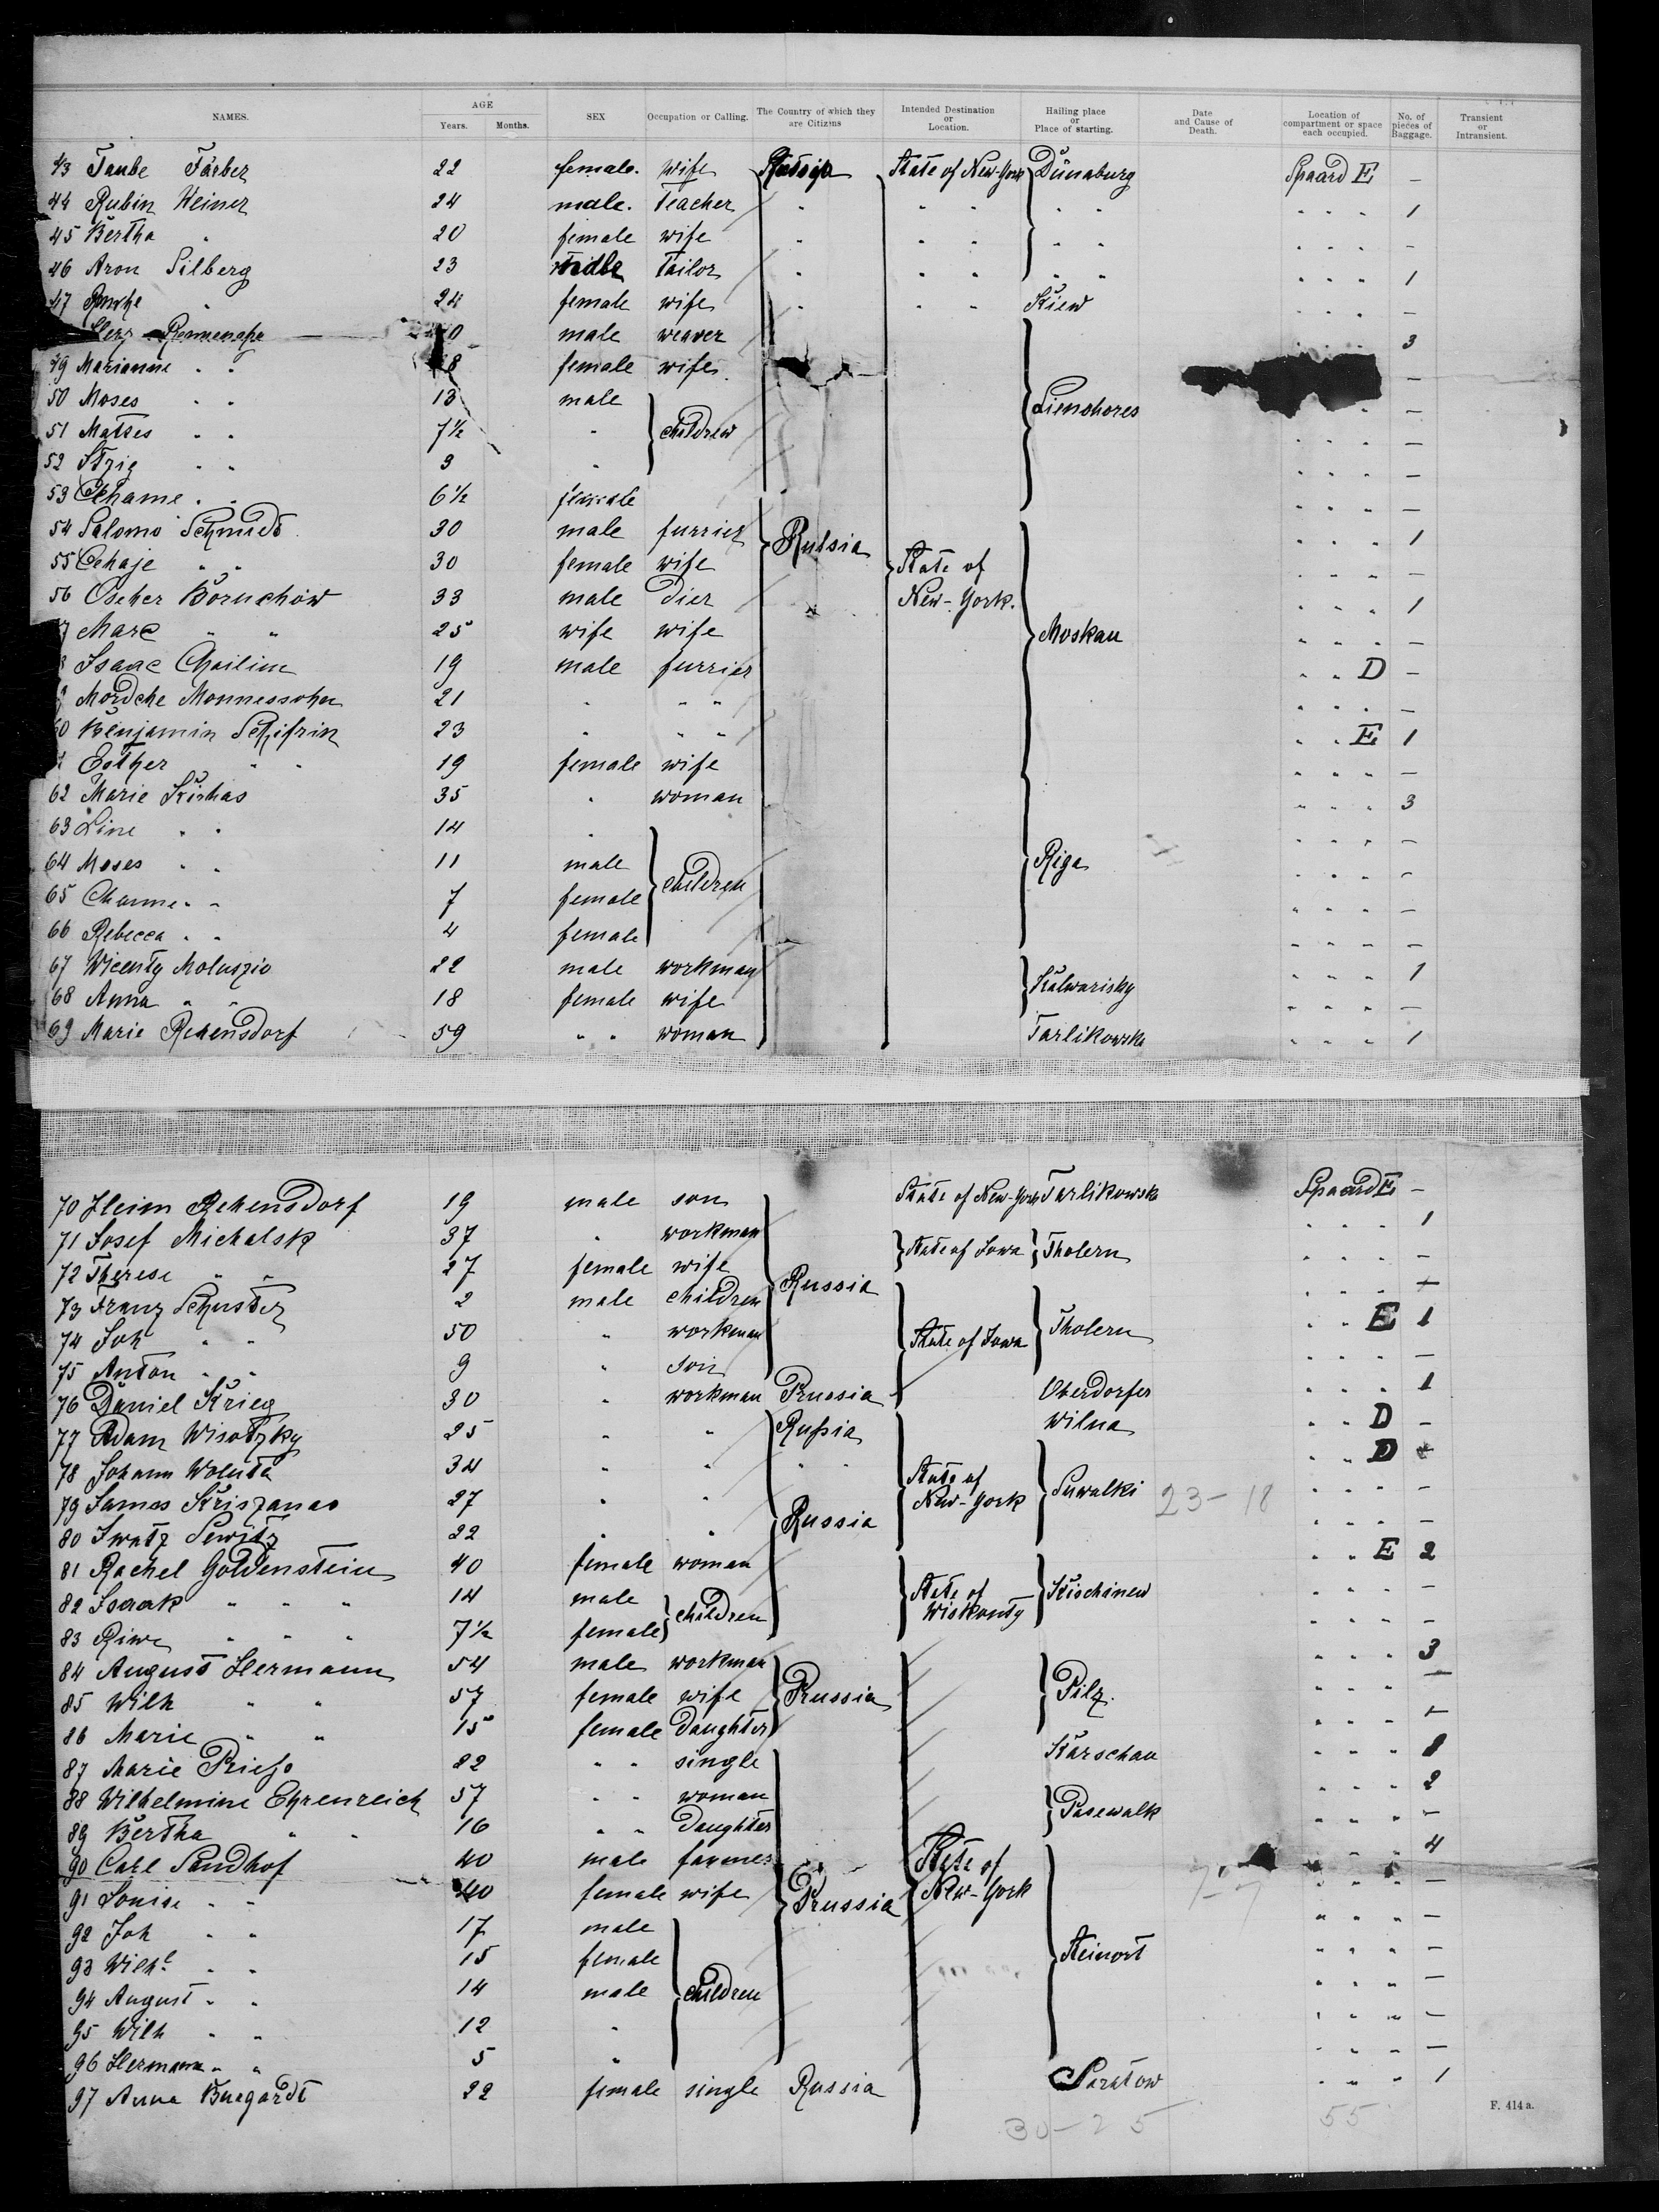 NAMES. AGE Years. Months. SEX Occupation or Calling. The Country of which they are Citizins Intended Destination or Location. Hailing place or Place of starting. Date and Cause of Death. Location of compartment or space each occupied. No. of pieces of Baggage. Transient or Intransient.
43 Taube Färber 22 female. wife Russia State of New-York Dünaburg Spaard E -
44 Rubin Weiner 24 male. Teacher " " " " " " " " 1
45 Bertha " 20 female wife " " " " " " " " -
46 Aron Silberg 23 male Tailor " " " " " " " " 1
47 " 24 female wife " " " Kiew " " " -
male weaver " " " 3
49 Marianne " " female wife -
50 Moses " " 13 male Lienohores " -
51 Matses " " 7½ " children " " " -
52 Itzig " " 3 " " " " -
53 Chame " " 6½ female " " " -
54 Salomo Schmidt 30 male furrier Russia " " " 1
55 Cehaje " " 30 female wife State of " " " -
56 Oscher Boruchow 33 male dier New-York. " " " 1
Marc " " 25 wife wife Moskau " " " -
Isaac Chailim 19 male furrier " " D -
Mordche Monnessohn 21 " " " " " " -
60 Benjamin Schifrin 23 " " " " " E 1
Esther " " 19 female wife " " " -
62 Marie Kishas 35 " woman " " " 3
63 Line " " 14 " " " " -
64 Moses " " 11 male Riga " " " -
65 Channe " " 7 female children " " " -
66 Rebecca " " 4 female " " " -
67 Wicenty Moluszio 22 male workman " " " 1
68 Anna " " 18 female wife Kalwarisky " " " -
69 Marie Rehensdorf 59 " " woman Tarlikowsk " " " 1
70 Heim Rehensdorf 19 male son State of New-York Tarlikowsk Spaard E -
71 Josef Michalsk 37 " workman " " " 1
72 Therese " " 27 female wife State of Iowa Tholern " " " -
73 Franz Schuster 2 male children Russia " " " -
74 Joh " " 50 " workman State of Iowa Tholern " " E 1
75 Anton " " 9 " son " " " -
76 Daniel Krieg 30 " workman Prussia Oberdorfer " " " 1
77 Adam Wisotzky 25 " " Russia Wilna " " D -
78 Johann Woluta 34 " " " " " " D
79 James Kriszanas 27 " " State of New-York Suwalki 23-18 " " " -
80 Iwatz Sewitz 22 " " Russia " " " -
81 Rachel Goldenstein 40 female woman " " E 2
82 Isaak " " " 14 male State of Wiskonty Kischinew " " " -
83 Riwe " " " 7½ female children " " " -
84 August Hermann 54 male workman " " " 3
85 Wilh " " 57 female wife Prussia Pilz. " " " -
86 Marie " " 15 female Daughter " " " -
87 Marie Priess 22 " " single Karschau " " "
88 Wilhelmine Ehrenreich 57 " " woman " " " 2
89 Bertha " " 16 " " Daughter Pasewalk " " " -
90 Carl Sandhof 40 male farmer State of " " 4
91 Louise " " 40 female wife Prussia New-York 7-7 " " " -
92 Joh " " 17 male " " " -
93 Wilhe " " 15 female Steinort " " " -
94 August " " 14 male children " " " -
95 Wilh " " 12 " " " " -
96 Hermann " " 5 " " " " -
97 Anna Buegardt 22 female single Russia Saratow " " " 1
30-25 55
F. 414 a.